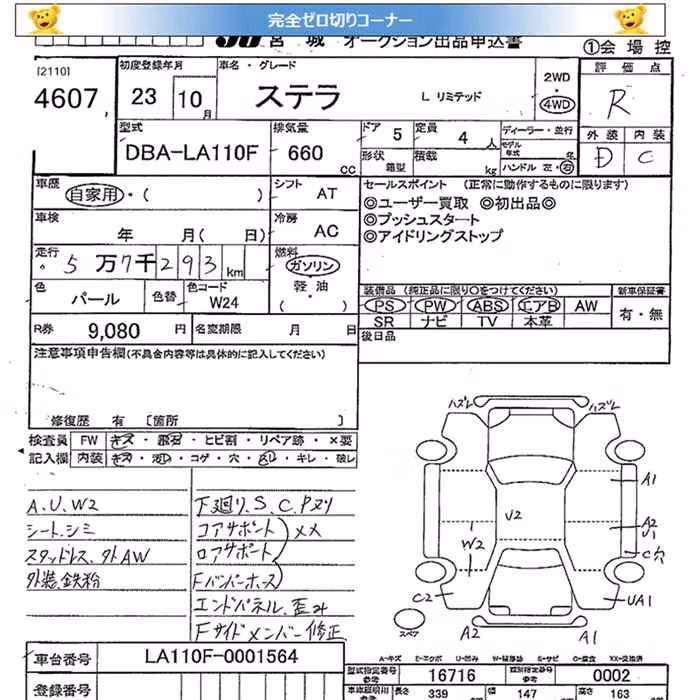 完全ゼロ切りコーナー
JU 宮城 オークション出品申込書
①会場控
[2110]
4607
初度登録年月
23 10月
車名・グレード
ステラ L リミテッド
2WD
・
4WD
評価点
R
外装 内装
D C
型式
DBA-LA110F
排気量
660 CC
ドア 5
定員 4人
形状 箱型
積載 kg
ディーラー・並行
モデル年式 年
ハンドル 左・右
車歴
自家用・( )
シフト AT
車検
年 月( 日)
冷房 AC
走行
5万7千293km
燃料
ガソリン
・
軽油
・
( )
色 パール
色替
色コード W24
R券 9,080円
名変期限 月 日
セールスポイント (正常に動作するものに限ります)
◎ユーザー買取 ◎初出品◎
◎プッシュスタート
◎アイドリングストップ
装備品 (純正品に限り○をつけてください)
PS PW ABS エアB AW
SR ナビ TV 本革
新車保証書
有・無
後日品
注意事項申告欄(不具合内容等は具体的に記入してください)
修復歴 有 〔箇所 〕
検査員 FW キズ・飛石・ヒビ割・リペア跡・×要
記入欄 内装 キズ・汚レ・コゲ・穴・スレ・キレ・破レ
A.U.W2
シート.シミ
スタッドレス.外AW
外装.鉄粉
下廻り.S.C.Pヌリ
コアサポート
ロアサポート
XX
Fバンパーホース
エンドパネル.歪み
Fサイドメンバー修正
ハズレ
ハズレ
A1
V2
A2
U1
W2
C穴
C2
UA1
スペア
A2
A1
A-キズ E-エクボ U-凹み W-補修跡 S-サビ C-腐食 XX-交換済
車台番号 LA110F-0001564
型式指定番号 参考 16716
類別指定番号 参考 0002
登録番号
長さ 339
幅 147
高さ 163